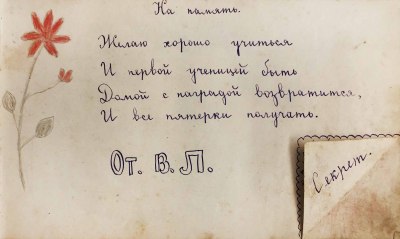 На память.
Желаю хорошо учиться
И первой ученицей быть
Домой с наградой возвратится,
И все пятерки получать.
От. В. П.
Секрет.